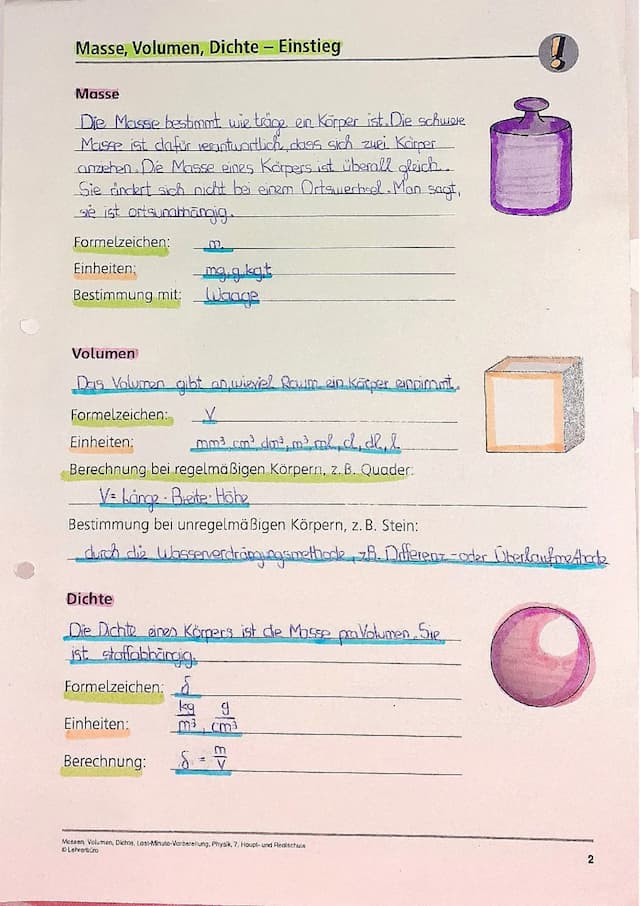 Masse, Volumen, Dichte – Einstieg
!
Masse
Die Masse bestimmt wie träge ein Körper ist. Die schwere
Masse ist dafür verantwortlich, dass sich zwei Körper
anziehen. Die Masse eines Körpers ist überall gleich.
Sie ändert sich nicht bei einem Ortswechsel. Man sagt,
sie ist ortsunabhängig.
Formelzeichen: m
Einheiten: mg, g, kg, t
Bestimmung mit: Waage
Volumen
Das Volumen gibt an, wieviel Raum ein Körper einnimmt.
Formelzeichen: V
Einheiten: mm³, cm³, dm³, m³, ml, cl, dl, l
Berechnung bei regelmäßigen Körpern, z. B. Quader:
V = Länge · Breite · Höhe
Bestimmung bei unregelmäßigen Körpern, z. B. Stein:
durch die Wasserverdrängungsmethode, z.B. Differenz- oder Überlaufmethode
Dichte
Die Dichte eines Körpers ist die Masse pro Volumen. Sie
ist stoffabhängig.
Formelzeichen: δ
Einheiten: kg/m³, g/cm³
Berechnung: δ = m/V
Massen, Volumen, Dichte, Last-Minute-Vorbereitung, Physik, 7, Haupt- und Realschule
© Lehrerbüro
2